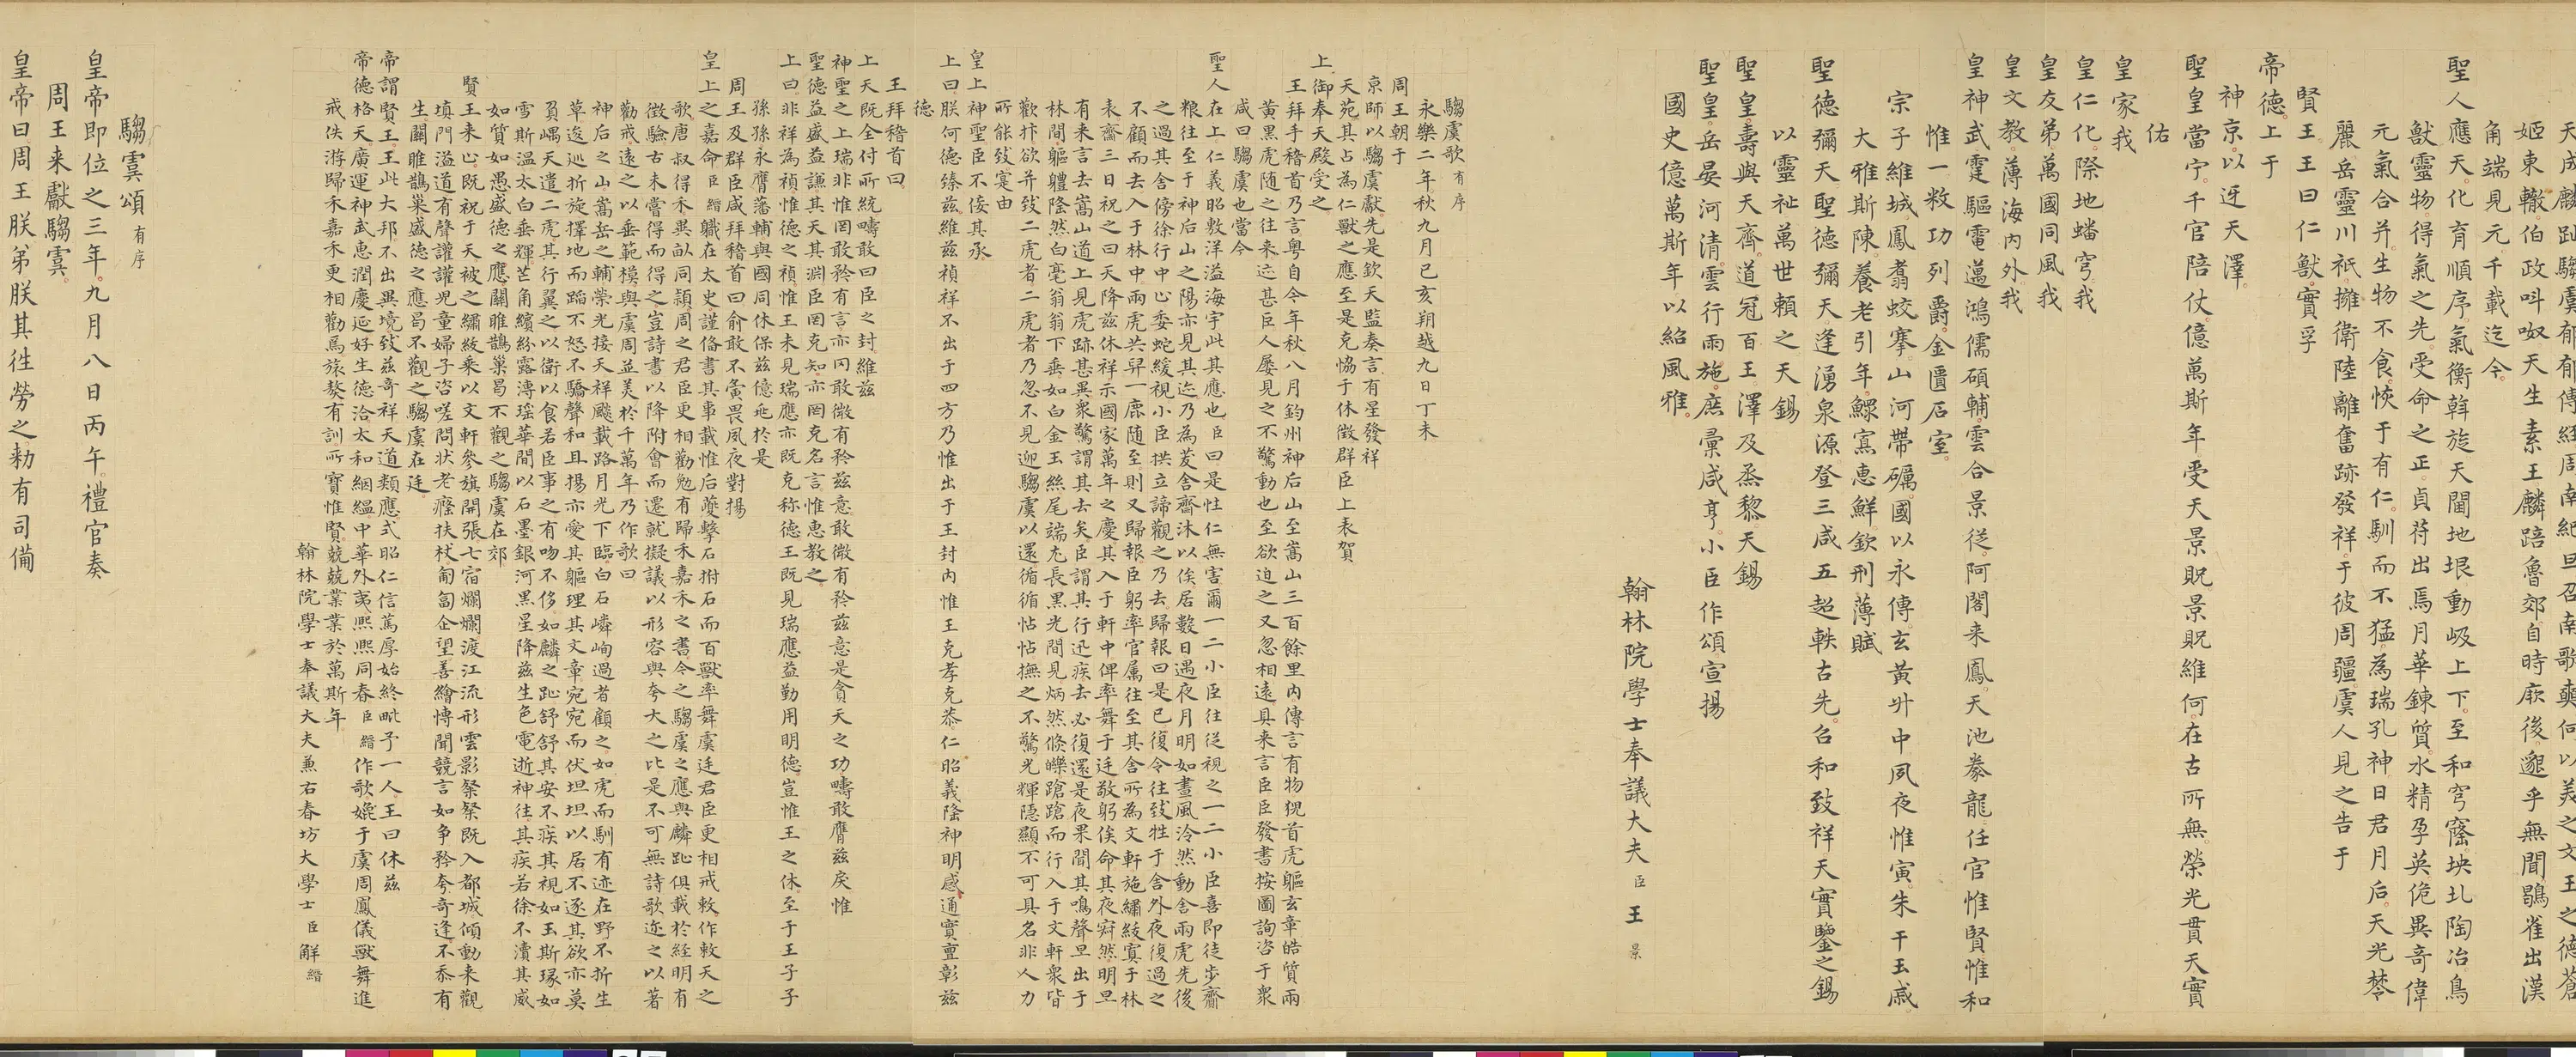 天成麟趾騶虞郁郁傳經周南絕旦召南歌奭何以美之文王之德蒼
姬東轍伯政呌呶天生素王麟踣魯郊自時厥後邈乎無聞鶡雀出漢
角端見元千載迄今
聖人應天化育順序氣衡斡旋天闓地垠動岋上下至和穹窿坱圠陶冶鳥
獸靈物得氣之先受命之正貞符出焉月華鍊質水精孕英俶異奇偉
元氣合并生物不食悏于有仁馴而不猛為瑞孔神日君月后天光棽
麗岳靈川祇擁衛陸離奮跡發祥于彼周疆虞人見之告于
賢王王曰仁獸實孚
帝德上于
神京以迓天澤
聖皇當宁千官陪仗億萬斯年受天景貺景貺維何在古所無榮光貫天實
佑
皇家我
皇仁化際地蟠穹我
皇友弟萬國同風我
皇文教薄海內外我
皇神武霆驅電邁鴻儒碩輔雲合景從阿閣来鳳天池豢龍任官惟賢惟和
惟一敕功列爵金匱石室
宗子維城鳳翥蛟搴山河帶礪國以永傳玄黃廾中夙夜惟寅朱干玉戚
大雅斯陳養老引年鰥寡惠鮮欽刑薄賦
聖德彌天聖德彌天逢湧泉源登三咸五超軼古先召和致祥天實鑒之錫
以靈祉萬世賴之天錫
聖皇壽與天齊道冠百王澤及烝黎天錫
聖皇岳晏河清雲行雨施庶彙咸亨小臣作頌宣揚
國史億萬斯年以紹風雅
翰林院學士奉議大夫臣王景
騶虞歌有序
永樂二年秋九月己亥朔越九日丁未
周王朝于
京師以騶虞獻先是欽天監奏言有星發祥
天苑其占為仁獸之應至是克恊于休徵群臣上表賀
上御奉天殿受之
王拜手稽首乃言粵自今年秋八月鈞州神后山至嵩山三百餘里內傳言有物猊首虎軀玄章皓質兩
黃黑虎隨之往来迹甚臣人屢見之不驚動也至欲迫之又忽相遠具来言臣臣發書按圖詢咨于衆
咸曰騶虞也當今
聖人在上仁義昭敷洋溢海宇此其應也臣曰是性仁無害爾一二小臣往從視之一二小臣喜即徒步齎
粮往至于神后山之陽亦見其迹乃為茇舍齋沐以俟居數日遇夜月明如晝風泠然動舍兩虎先後
之過其舍傍徐行中心委蛇緩視小臣拱立諦觀之乃去歸報曰是已復令往致牲于舍外夜復過之
不顧而去入于林中兩虎共舁一鹿随至則又歸報臣躬率官属往至其舍所為文軒施繡綾寘于林
表齋三日祝之曰天降兹休祥示國家萬年之慶其入于軒中俾率舞于廷敬躬俟命其夜寂然明旦
有来言去嵩山道上見虎跡甚異衆驚謂其去矣臣謂其行迅疾去必復還是夜果聞其鳴聲旦出于
林間軀軆隆然白毫翁翁下垂如白金玉絲尾端尤長黑光間見炳然倏皪蹌蹌而行入于文軒衆皆
歡抃欲并致二虎者二虎者乃忽不見迎騶虞以還循循怗怗撫之不驚光輝隱顯不可具名非人力
所能致寔由
皇上神聖臣不倿其承
上曰朕何德臻兹維兹禎祥不出于四方乃惟出于王封內惟王克孝克恭仁昭義隆神明感通實亶彰兹
德
王拜稽首曰
上天既全付所統疇敢曰臣之封維兹
神聖之上瑞非惟罔敢矜有言亦罔敢微有矜兹意敢微有矜兹意是貪天之功疇敢膺兹戾惟
聖德益盛益謙其天其淵臣罔克知亦罔克名言惟惠教之
上曰非祥為禎惟德之禎惟王未見瑞應亦既克称德王既見瑞應益勤用明德豈惟王之休至于王子子
孫孫永膺藩輔與國同休保兹億兆於是
周王及群臣咸拜稽首曰俞敢不夤畏夙夜對揚
皇上之嘉命臣縉職在太史謹俻書其事載惟后夔擊石拊石而百獸率舞虞廷君臣更相戒敕作敕天之
歌唐叔得禾異畝同頴周之君臣更相勸勉有歸禾嘉禾之書今之騶虞之應與麟趾俱載於經明有
徵驗古未嘗得而得之豈詩書以降附會而遷就擬議以形容與夸大之比是不可無詩歌迩之以著
勸戒遠之以垂範模與虞周並美於千萬年乃作歌曰
神后之山嵩岳之輔榮光接天祥飈載路月光下臨白石嶙峋過者顧之如虎而馴有迹在野不折生
草逡巡折旋擇地而蹈不怒不驕聲和且揚亦愛其軀理其文章宛宛而伏坦坦以居不逐其欲亦莫
負嵎天遣二虎其行翼之以衛以食若臣事之有吻不侈如麟之趾舒舒其安不疾其視如玉斯琢如
雪斯温太白垂輝芒角繽紛露漙瑶華間以石墨銀河黑星降兹生色電逝神往其疾若徐不瀆其威
如質如愚盛德之應關雎鵲巢曷不觀之騶虞在郊
賢王来心既祝于天被之繡綾乘以文軒參旗開張七宿爛爛渡江流形雲影粲粲既入都城傾動来觀
填門溢道有聲讙讙兒童婦子咨嗟問状老癃扶杖匍匐企望善繪愽聞競言如争矜夸奇逢不忝有
生關雎鵲巢盛德之應曷不觀之騶虞在廷
帝謂賢王王此大邦不出異境致兹奇祥天道類應式昭仁信萬厚始終毗予一人王曰休兹
帝德格天廣運神武惠潤慶延好生德洽太和絪緼中華外夷熙熙同春臣縉作歌媲于虞周鳳儀獸舞進
戒佚游歸禾嘉禾更相勸焉旅獒有訓所寶惟賢兢兢業業於萬斯年
翰林院學士奉議大夫兼右春坊大學士臣解縉
騶虞頌有序
皇帝即位之三年九月八日丙午禮官奏
周王来獻騶虞
皇帝曰周王朕弟朕其徃勞之勑有司備